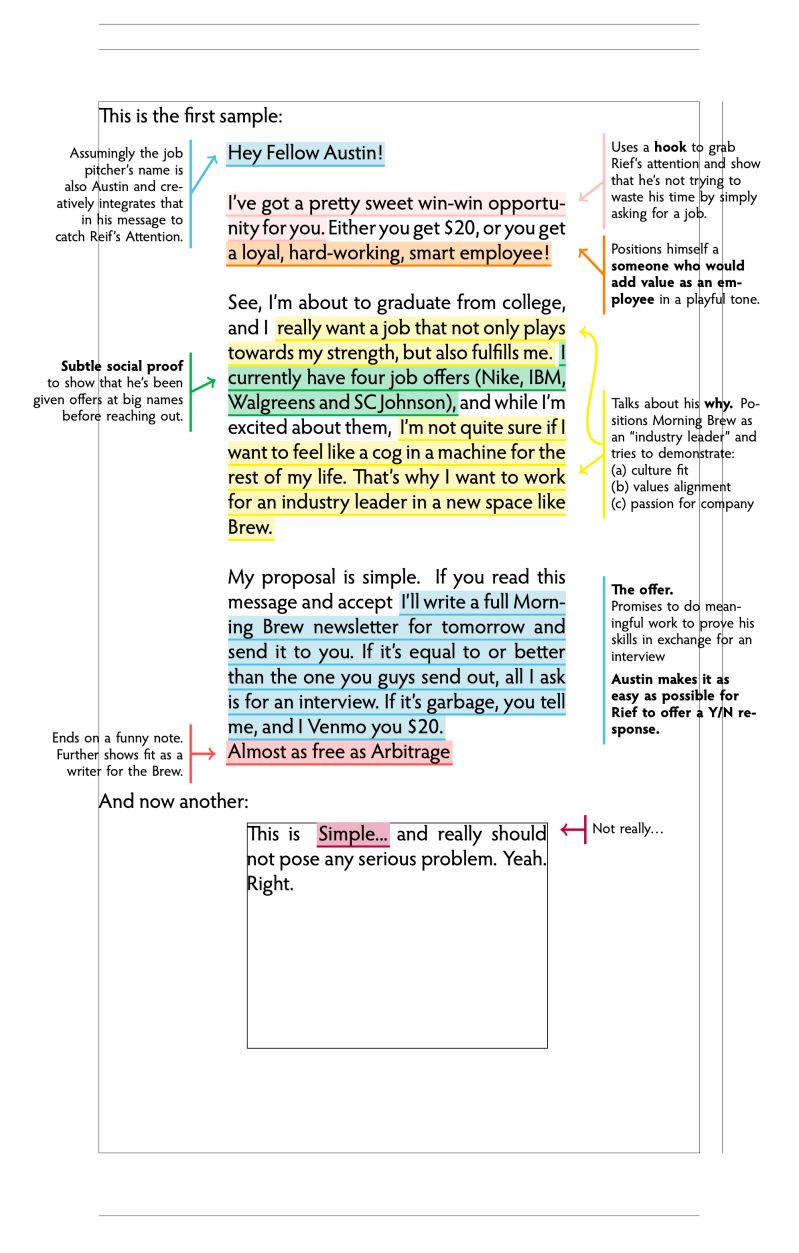 This is the first sample:
Assumingly the job
pitcher's name is
also Austin and cre-
atively integrates that
in his message to
catch Reif's Attention.
Hey Fellow Austin!
Uses a hook to grab
Rief's attention and show
that he's not trying to
waste his time by simply
asking for a job.
I've got a pretty sweet win-win opportu-
nity for you. Either you get $20, or you get
a loyal, hard-working, smart employee!
Positions himself a
someone who would
add value as an em-
ployee in a playful tone.
See, I'm about to graduate from college,
and I really want a job that not only plays
towards my strength, but also fulfills me. I
currently have four job offers (Nike, IBM,
Walgreens and SC Johnson), and while I'm
excited about them, I'm not quite sure if I
want to feel like a cog in a machine for the
rest of my life. That's why I want to work
for an industry leader in a new space like
Brew.
Subtle social proof
to show that he's been
given offers at big names
before reaching out.
Talks about his why. Po-
sitions Morning Brew as
an "industry leader" and
tries to demonstrate:
(a) culture fit
(b) values alignment
(c) passion for company
My proposal is simple. If you read this
message and accept I'll write a full Morn-
ing Brew newsletter for tomorrow and
send it to you. If it's equal to or better
than the one you guys send out, all I ask
is for an interview. If it's garbage, you tell
me, and I Venmo you $20.
Almost as free as Arbitrage
The offer.
Promises to do mean-
ingful work to prove his
skills in exchange for an
interview
Austin makes it as
easy as possible for
Rief to offer a Y/N re-
sponse.
Ends on a funny note.
Further shows fit as a
writer for the Brew.
And now another:
This is Simple... and really should
not pose any serious problem. Yeah.
Right.
Not really...